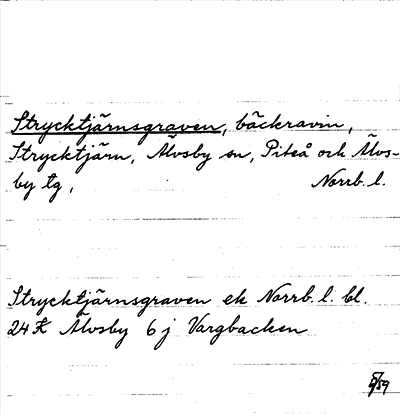 Strycktjärnsgraven, bäckravin,
Strycktjärn, Älvsby sn, Piteå och Älvs-
by tg, Norrb. l.
Strycktjärnsgraven ek Norrb. l. bl.
24 K Älvsby 6 j Vargbacken
/59